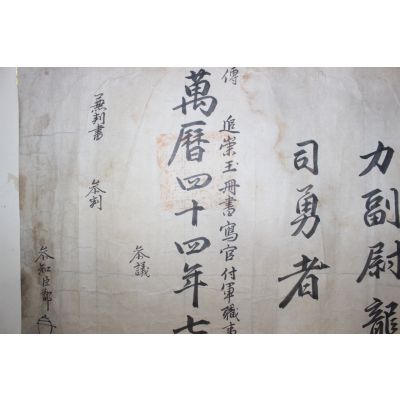 力副尉龍
司勇者
萬曆四十四年七
傳
追崇玉冊書寫官付軍職事
兼判書
參判
參議
參知臣鄭